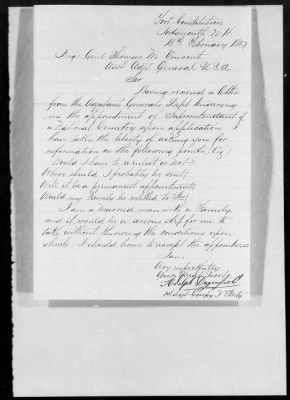 Fort Constitution
Portsmouth N. H.
15th February 1867
Genl Thomas M. Vincent
Asst Adjt General U S A
Sir
Having received a letter
from the Adjutant Generals Dept tendering
me the appointment of Superintendent of
a National Cemetery upon application
I have taken the liberty of asking you for
information on the following points, viz:
Would I have to reenlist or not?
Where should I probably be sent?
Will it be a permanent appointment?
Would my Family be entitled to
I am a married man with a Family,
and it would be a serious step for me to
take without knowing the conditions upon
which I should have to accept the appointment
I am
Very respectfully
Your
Adolph